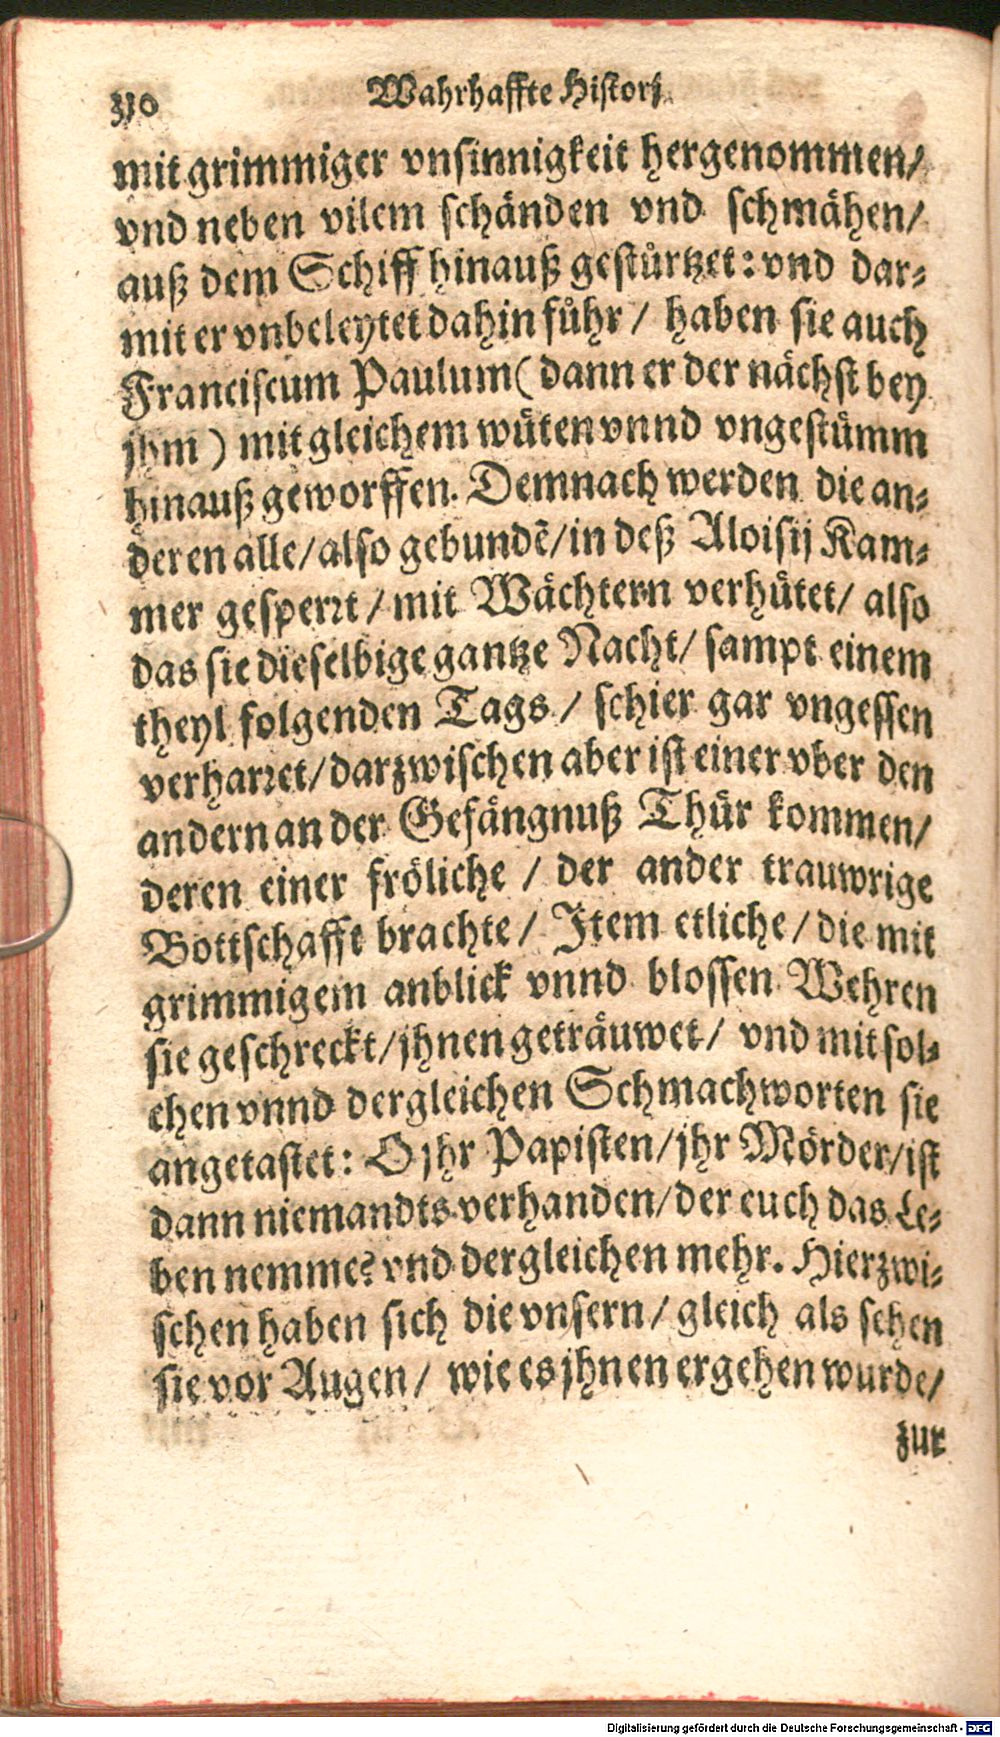 310 Wahrhaffte Histori
mit grimmiger vnsinnigkeit hergenommen/
vnd neben vilem schänden vnd schmähen/
auß dem Schiff hinauß gestürtzet: vnd dar-
mit er vnbeleytet dahin führ/ haben sie auch
Franciscum Paulum (dann er der nächst bey
jhm) mit gleichem wüten vnnd vngestümm
hinauß geworffen. Demnach werden die an-
deren alle/ also gebundẽ/ in deß Aloisij Kam-
mer gesperrt/ mit Wächtern verhütet/ also
das sie dieselbige gantze Nacht/ sampt einem
theyl folgenden Tags/ schier gar vngessen
verharret/ darzwischen aber ist einer vber den
andern an der Gefängnuß Thür kommen/
deren einer fröliche/ der ander trauwrige
Bottschafft brachte/ Item etliche/ die mit
grimmigem anblick vnnd blossen Wehren
sie geschreckt/ jhnen geträuwet/ vnd mit sol-
chen vnnd dergleichen Schmachworten sie
angetastet: O jhr Papisten/ jhr Mörder/ ist
dann niemandts verhanden/ der euch das Le-
ben nemme? vnd dergleichen mehr. Hierzwi-
schen haben sich die vnsern/ gleich als sehen
sie vor Augen/ wie es jhnen ergehen wurde/
zur
Digitalisierung gefördert durch die Deutsche Forschungsgemeinschaft - DFG